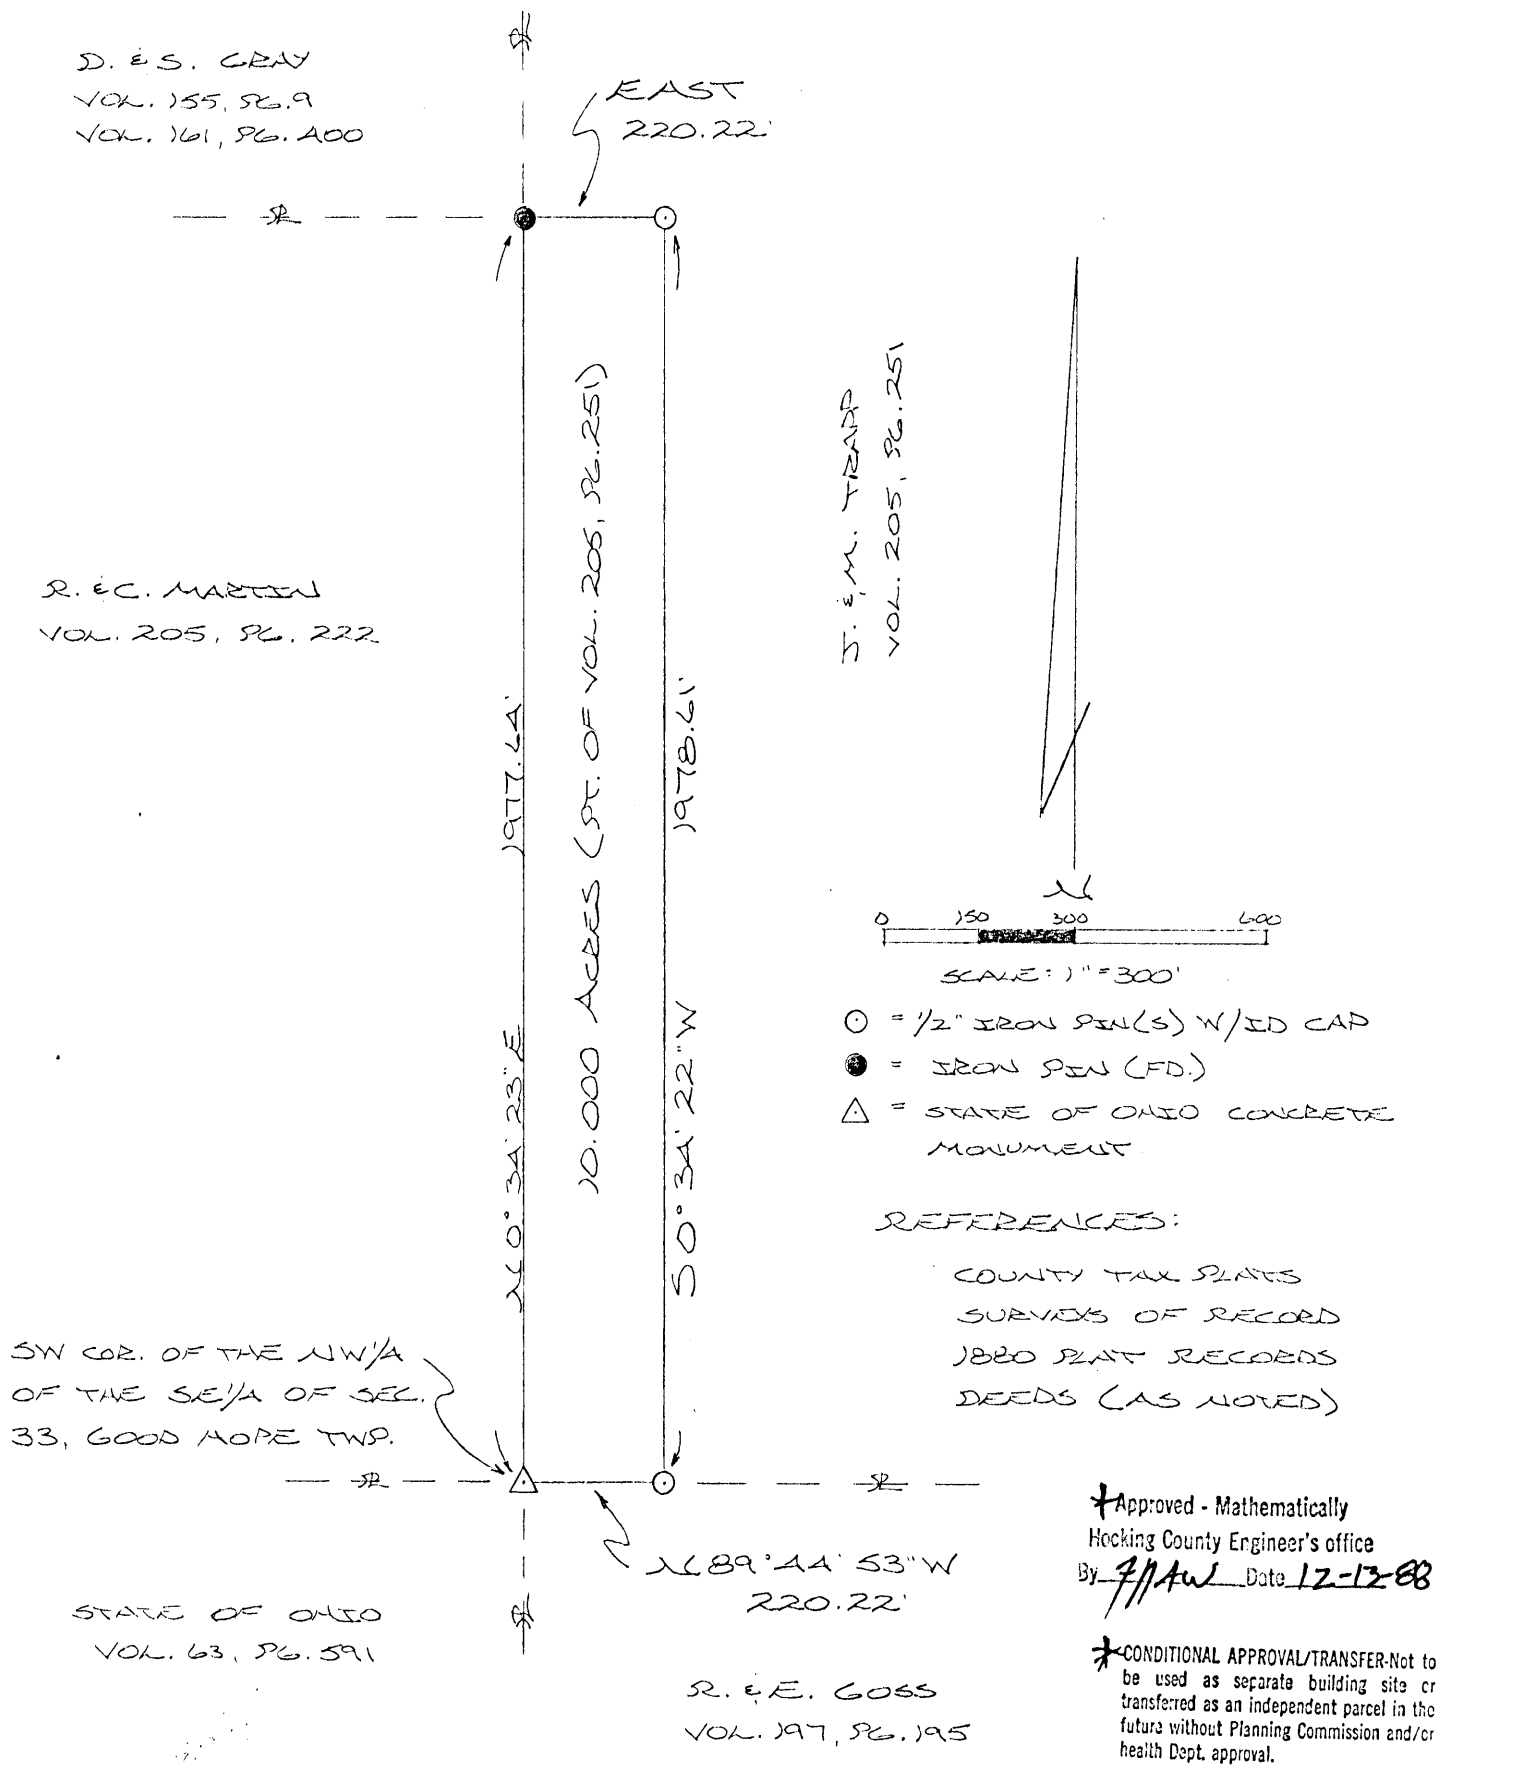 D. & S. GRAY
VOL. 155, PG. 9
VOL. 161, PG. 400
EAST
220.22'
R. & C. MARTIN
VOL. 205, PG. 222
N 0° 34' 23" E 1977.64'
10.000 ACRES (PT. OF VOL. 205, PG. 251)
S 0° 34' 22" W 1978.61'
J. & M. TRAPP
VOL. 205, PG. 251
N
0 150 300 600
SCALE: 1" = 300'
= 1/2" IRON PIN(S) W/ID CAP
= IRON PIN (FD.)
= STATE OF OHIO CONCRETE
MONUMENT
REFERENCES:
COUNTY TAX PLATS
SURVEYS OF RECORD
1880 PLAT RECORDS
DEEDS (AS NOTED)
SW COR. OF THE NW1/4
OF THE SE1/4 OF SEC.
33, GOOD HOPE TWP.
N 89° 44' 53" W
220.22'
STATE OF OHIO
VOL. 63, PG. 591
R. & E. GOSS
VOL. 197, PG. 195
*Approved - Mathematically
Hocking County Engineer's office
By Date 12-13-88
*CONDITIONAL APPROVAL/TRANSFER-Not to
be used as separate building site or
transferred as an independent parcel in the
future without Planning Commission and/or
health Dept. approval.